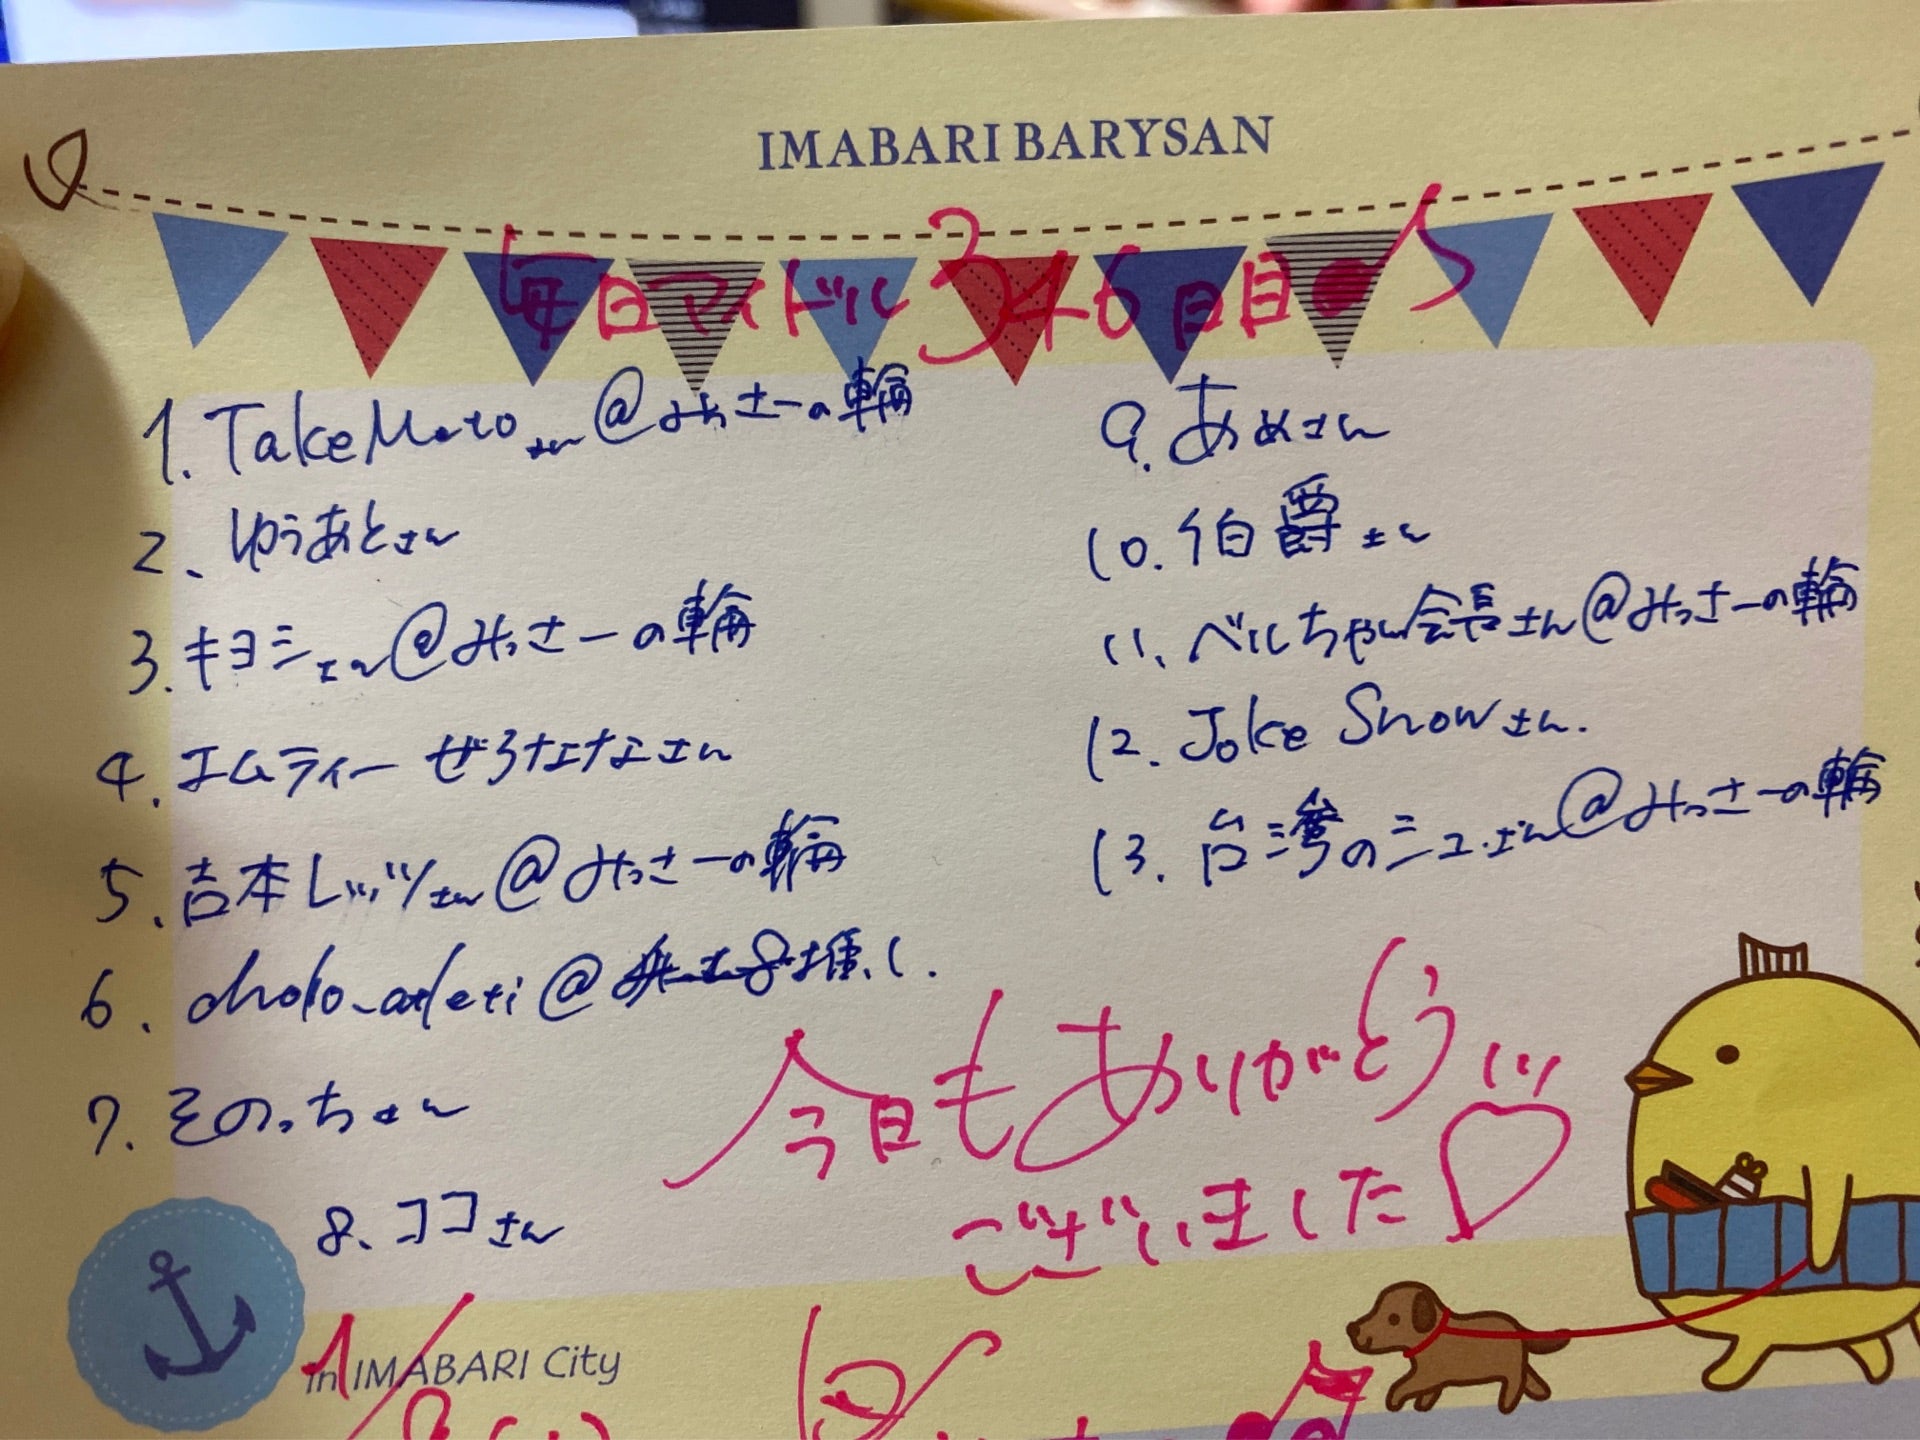 IMABARI BARYSAN
毎日アイドル346日目♪
1. TakeMotoさん@みっさーの輪
2、ゆうあとさん
3. キヨシさん@みっさーの輪
4. エムティーぜろななさん
5. 吉本レッツさん@みっさーの輪
6. @推し.
7. そのっちさん
8、ココさん
9. あめさん
10. 伯爵さん
11、ベルちゃん会長さん@みっさーの輪
12. Joke Snowさん.
13. 台湾のシュさん@みっさーの輪
今日もありがとう
ございました♡
in IMABARI City